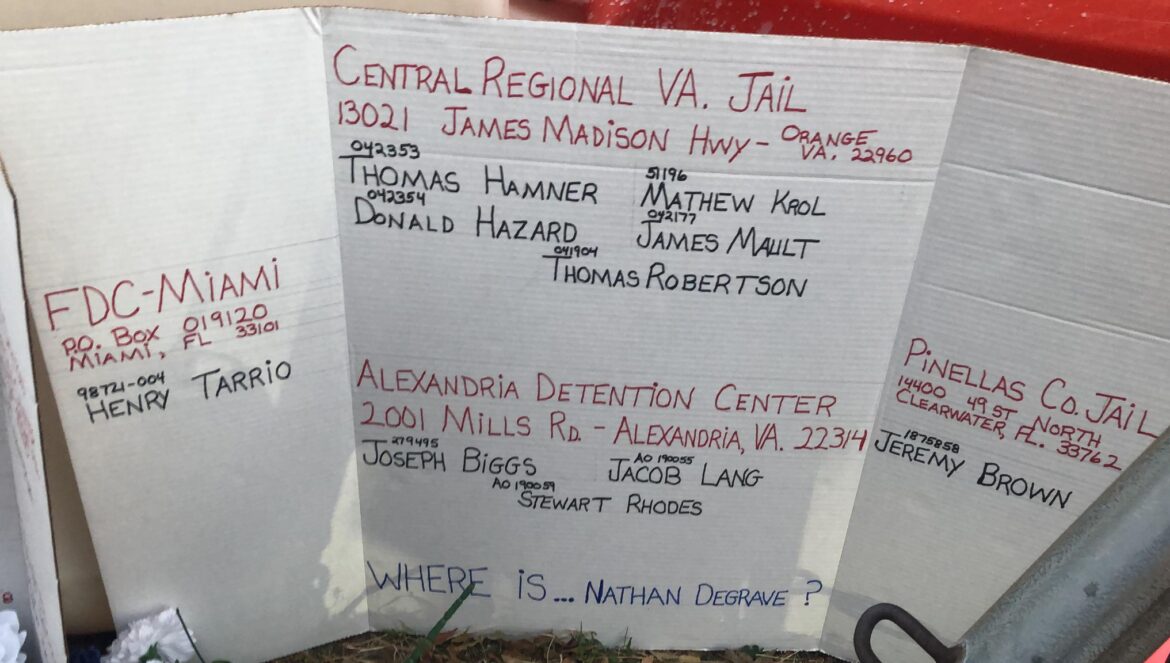 CENTRAL REGIONAL VA. JAIL
13021 JAMES MADISON HWY - ORANGE VA. 22960
042353
THOMAS HAMNER
042354
DONALD HAZARD
51196
MATHEW KROL
042177
JAMES MAULT
041904
THOMAS ROBERTSON
FDC-MIAMI
P.O. BOX 019120
MIAMI, FL 33101
98721-004
HENRY TARRIO
ALEXANDRIA DETENTION CENTER
2001 MILLS RD. - ALEXANDRIA, VA. 22314
279495
JOSEPH BIGGS
A0190055
JACOB LANG
A0190059
STEWART RHODES
PINELLAS CO. JAIL
14400 49 ST NORTH
CLEARWATER, FL. 33762
1875858
JEREMY BROWN
WHERE IS... NATHAN DEGRAVE ?